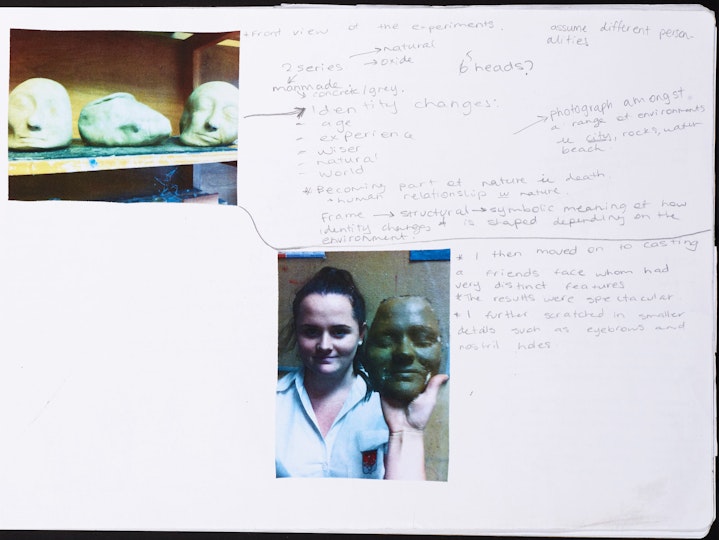 * Front view of the experiments.
assume different person-
alities
2 series → natural
→ oxide
manmade
↳ concrete/grey.
6 heads?
→ Identity changes:
- age
- experience
- wiser
- natural
- world
→ photograph amongst
a range of environments
ie city, rocks, water
beach.
* Becoming part of nature ie death.
+ human relationship w nature.
Frame → structural → symbolic meaning of how
identity changes + is shaped depending on the
environment.
* I then moved on to casting
a friends face whom had
very distinct features
* The results were spectacular
* I further scratched in smaller
details such as eyebrows and
nostril holes.